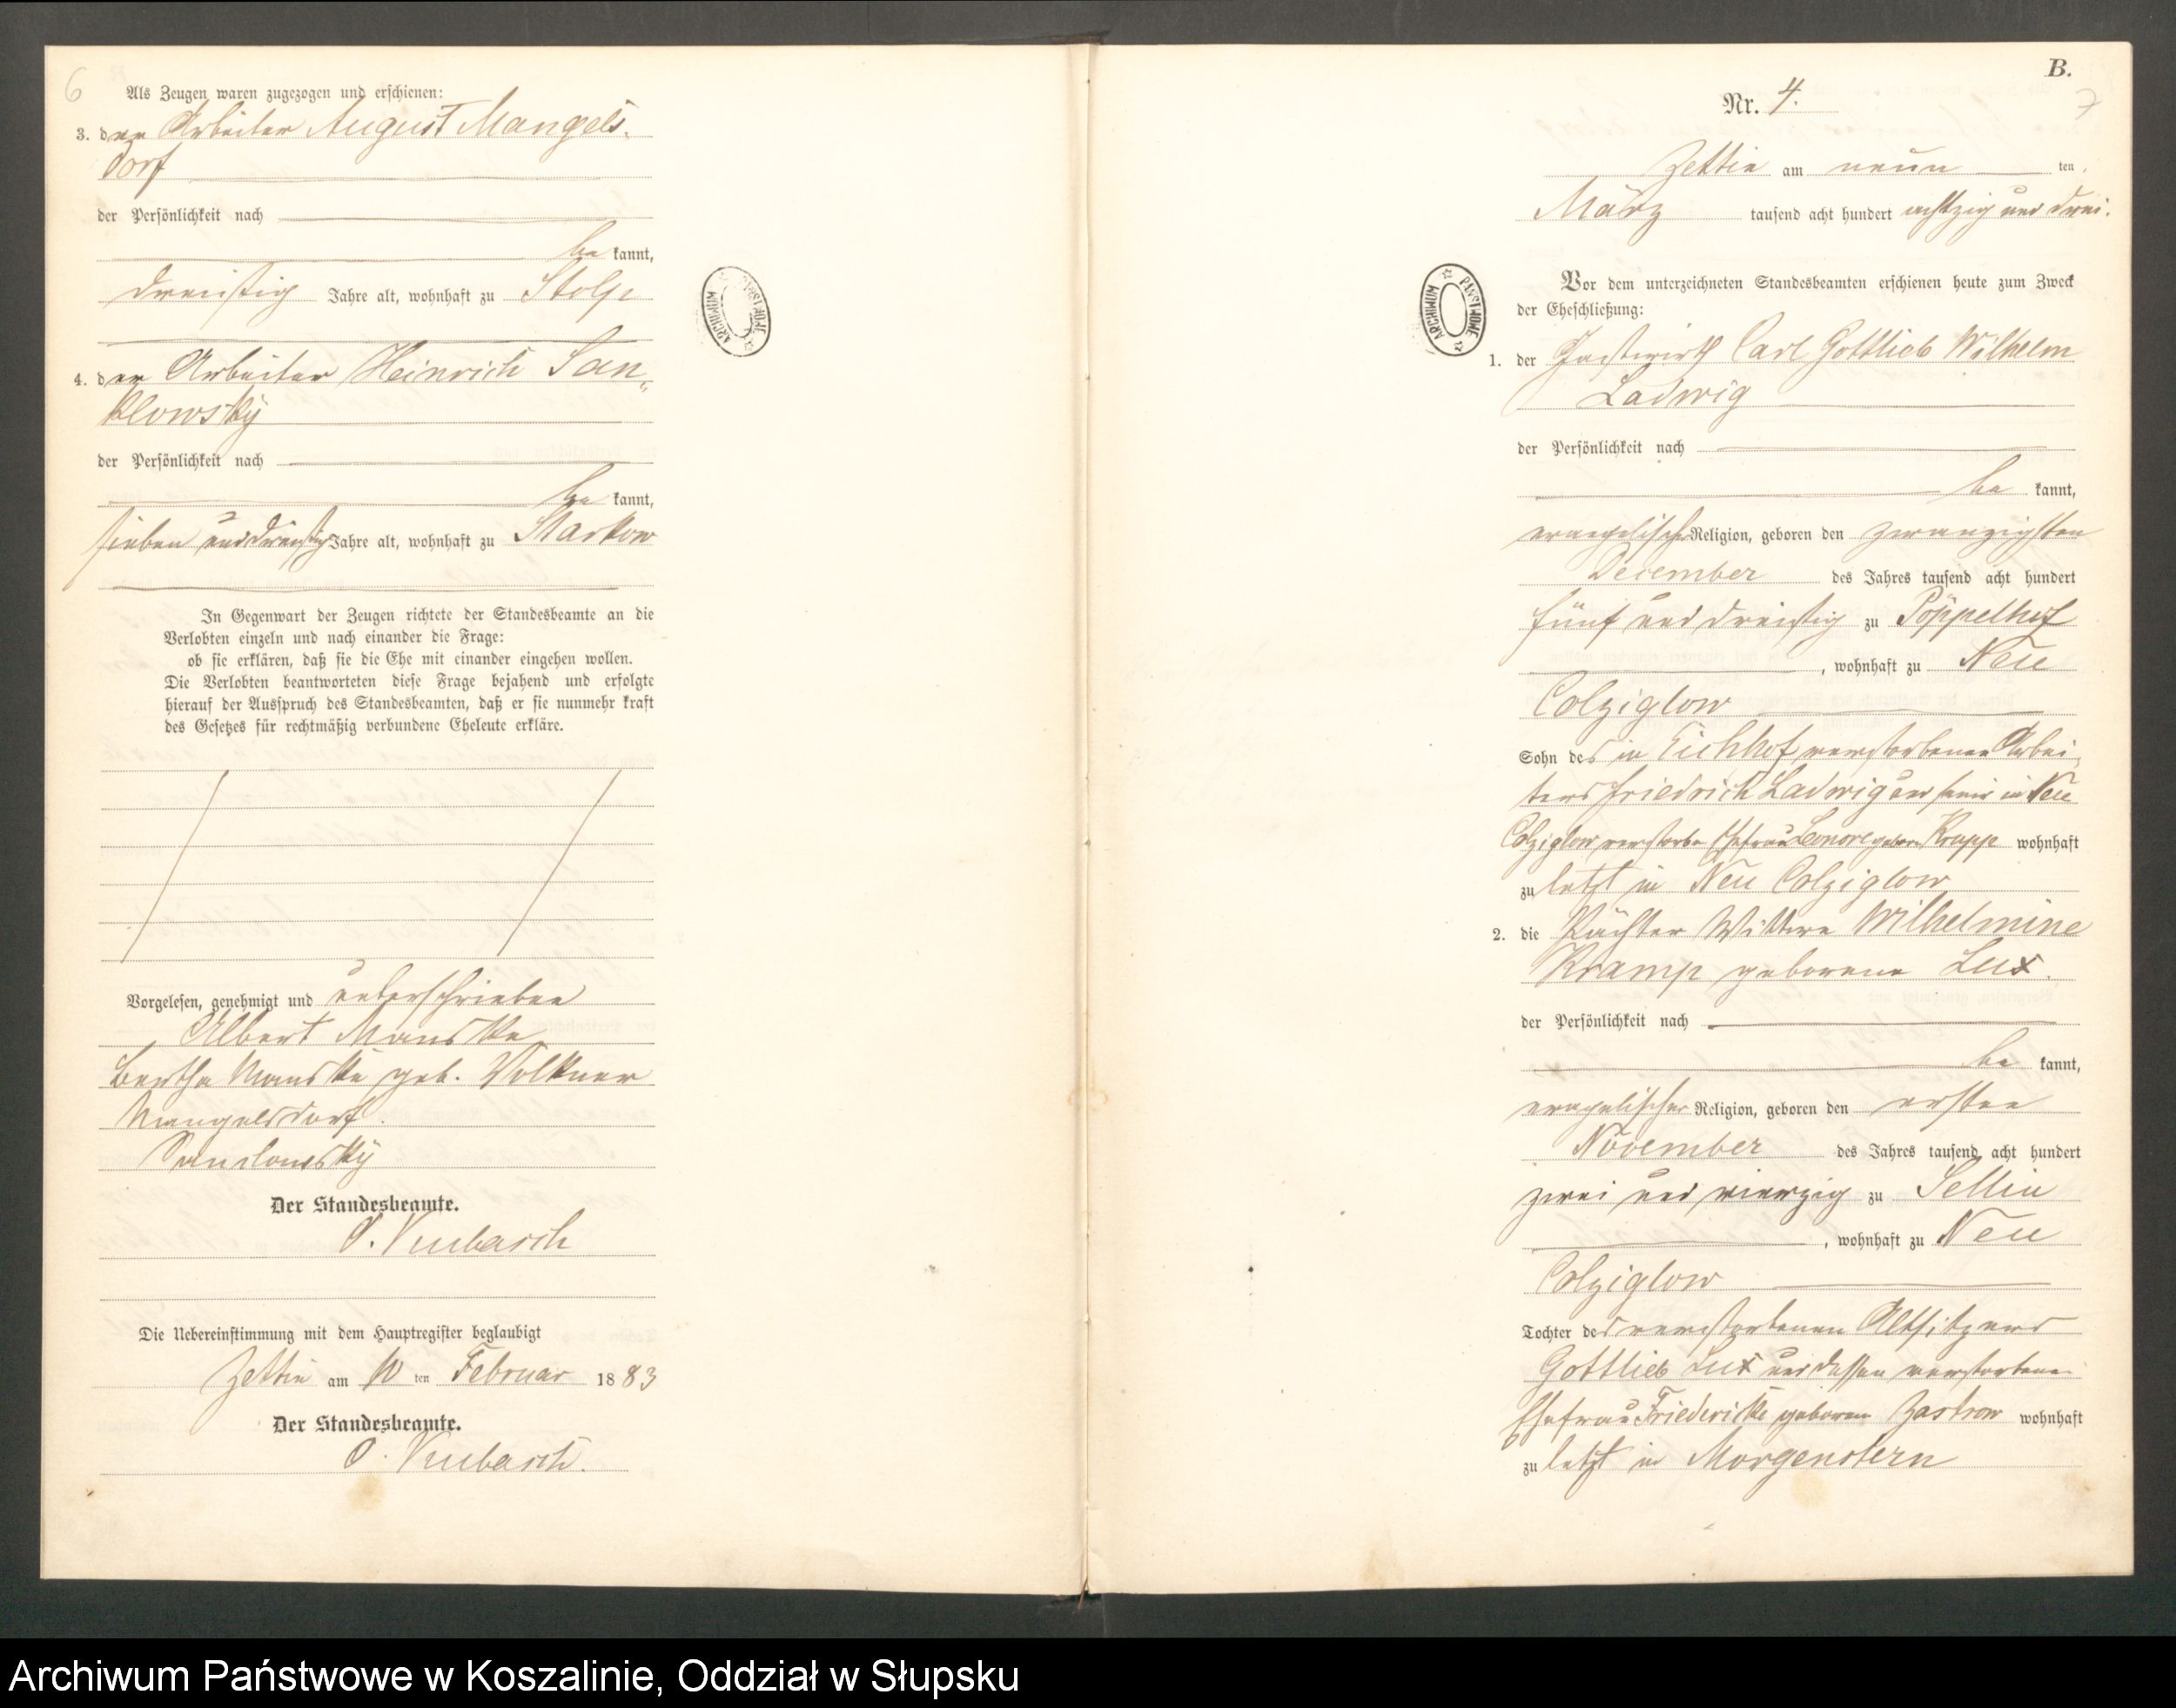 6
Als Zeugen waren zugezogen und erschienen:
3. der Arbeiter August Mangels-
dorf
der Persönlichkeit nach
be kannt,
dreißig Jahre alt, wohnhaft zu Stolp
4. der Arbeiter Heinrich San-
klowsky
der Persönlichkeit nach
be kannt,
sieben und dreißig Jahre alt, wohnhaft zu Starkow
In Gegenwart der Zeugen richtete der Standesbeamte an die
Verlobten einzeln und nach einander die Frage:
ob sie erklären, daß sie die Ehe mit einander eingehen wollen.
Die Verlobten beantworteten diese Frage bejahend und erfolgte
hierauf der Ausspruch des Standesbeamten, daß er sie nunmehr kraft
des Gesetzes für rechtmäßig verbundene Eheleute erkläre.
Vorgelesen, genehmigt und unterschrieben
Albert Manske
Bertha Manske geb. Volkner
Mangelsdorf.
Der Standesbeamte.
Die Uebereinstimmung mit dem Hauptregister beglaubigt
Zettin am 10 ten Februar 1883
Der Standesbeamte.
ARCHIWUM PAŃSTWOWE
B.
7
Nr. 4.
Zettin am neun ten
März tausend acht hundert achtzig und drei.
ARCHIWUM PAŃSTWOWE
Vor dem unterzeichneten Standesbeamten erschienen heute zum Zweck
der Eheschließung:
1. der Gastwirth Carl Gottlieb Wilhelm
Ladwig
der Persönlichkeit nach
be kannt,
evangelischer Religion, geboren den zwanzigsten
December des Jahres tausend acht hundert
fünf und dreißig zu Pöppelhof
, wohnhaft zu Neu
Colziglow
Sohn des in Eichhof verstorbenen Arbei-
ters Friedrich Ladwig und seiner in Neu
Colziglow verstorbenen Ehefrau Leonore geboren Krapp wohnhaft
zu letzt in Neu Colziglow
2. die Pächter Wittwe Wilhelmine
Kramp geborene Lux.
der Persönlichkeit nach
be kannt,
evangelischer Religion, geboren den ersten
November des Jahres tausend acht hundert
zwei und vierzig zu Sellin
, wohnhaft zu Neu
Colziglow
Tochter des verstorbenen Altsitzers
Gottlieb Lux und dessen verstorbenen
Ehefrau Friedericke geboren Zastrow wohnhaft
zu letzt in Morgenstern
Archiwum Państwowe w Koszalinie, Oddział w Słupsku